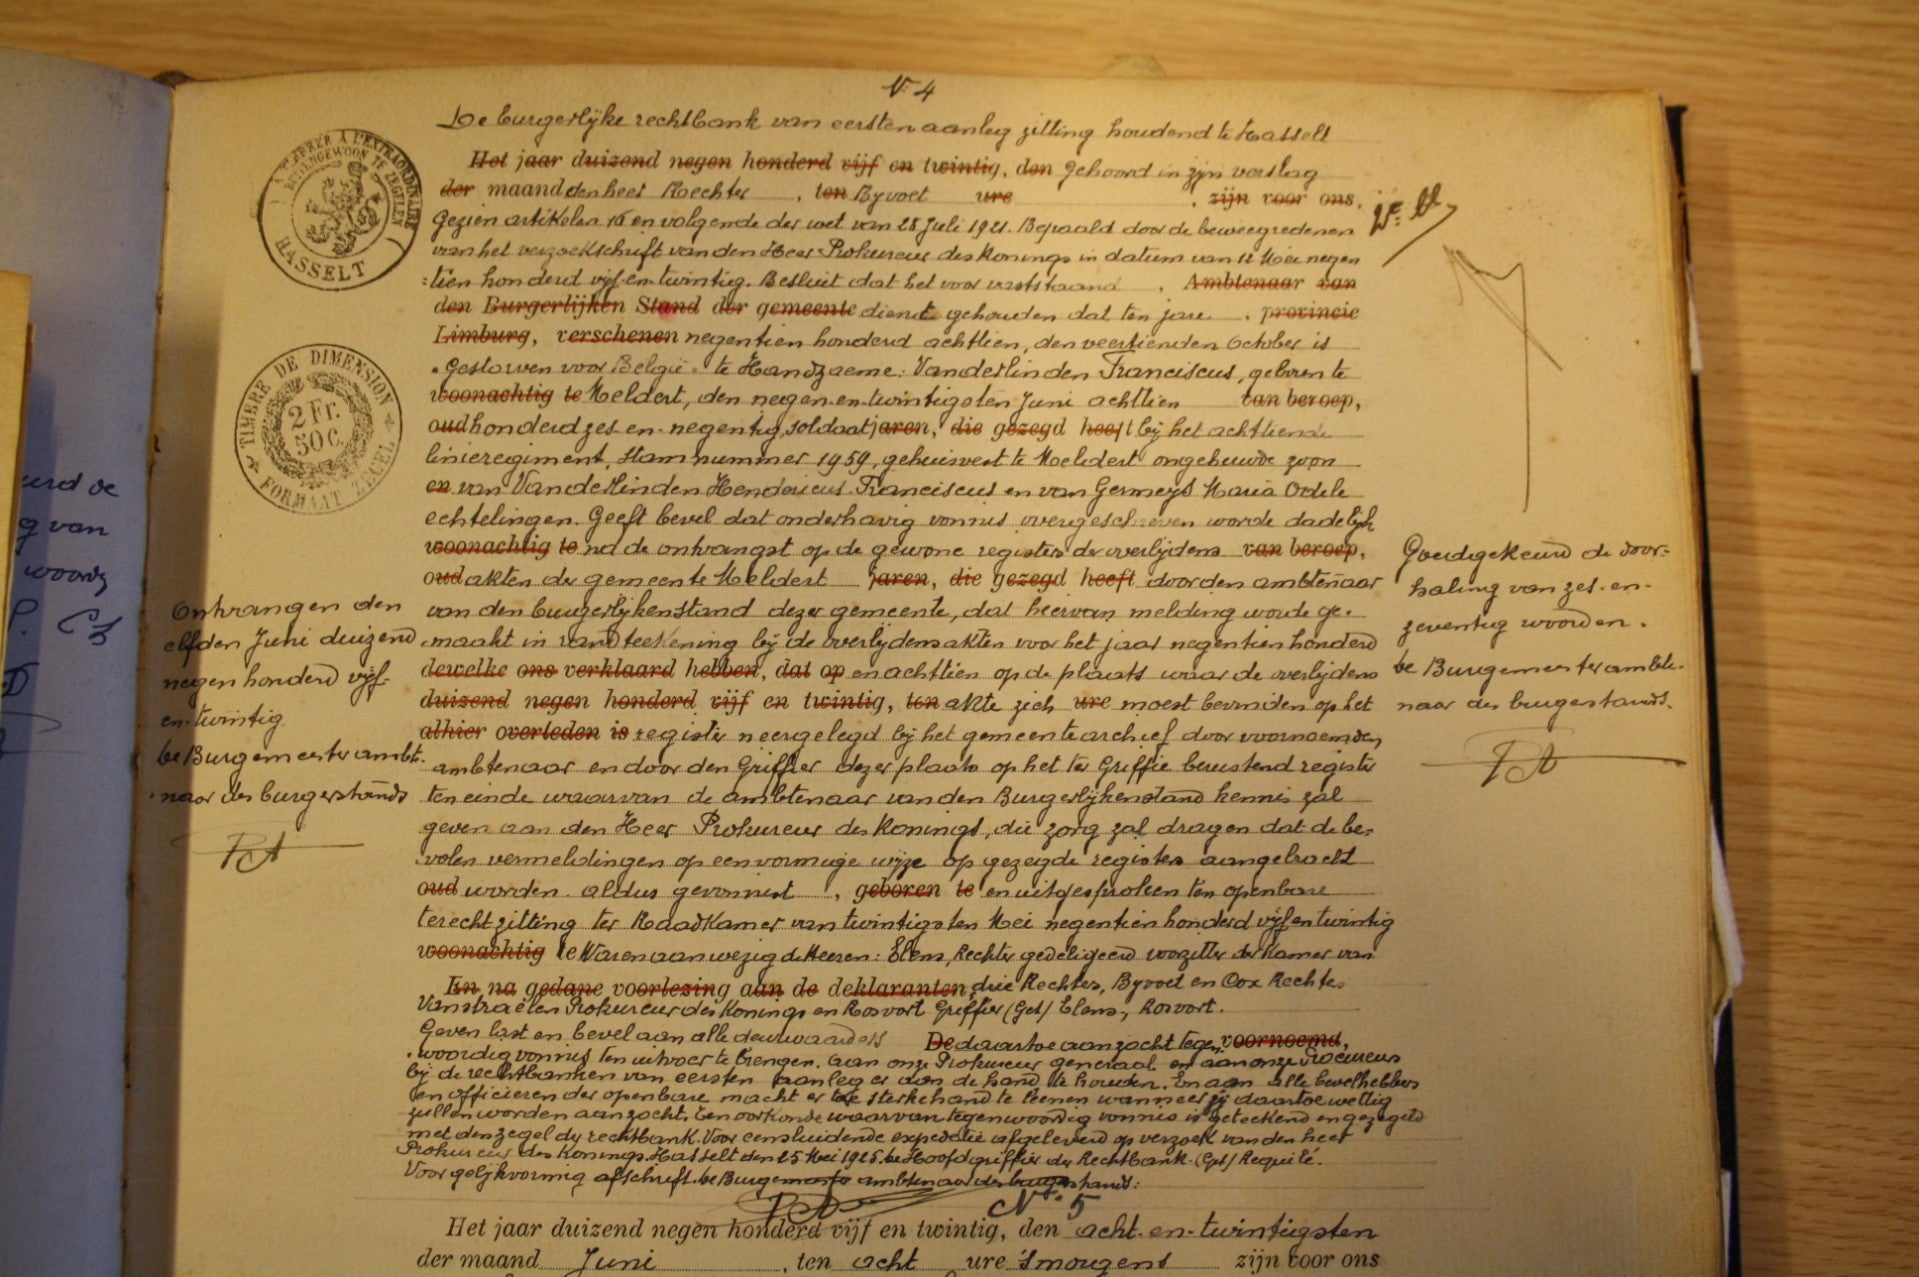 N 4
De burgerlijke rechtbank van eersten aanleg zitting houdend te Hasselt
Het jaar duizend negen honderd vijf en twintig, den Gehoord in zijn verslag
der maand den heer Rechter , ten Byvoet ure , zijn voor ons,
Gezien artikelen 16 en volgende der wet van 28 Juli 1921. Bepaald door de beweegredenen
van het verzoekschrift van den Heer Prokureur des Konings in datum van 12 Mei negen
tien honderd vijf-en-twintig. Besluit dat het voor vaststaand , Ambtenaar van
den Burgerlijken Stand der gemeente dient gehouden dat ten jare , provincie
Limburg, verschenen negentien honderd achttien, den veertienden October is
"Gestorven voor België" te Handzaeme: Vanderlinden Franciscus, geboren te
woonachtig te Meldert, den negen-en-twintigsten Juni achttien van beroep,
oud honderd zes-en-negentig, soldaat jaren, die gezegd heeft bij het achttiende
linieregiment, stamnummer 1959, gehuisvest te Meldert ongehuwde zoon
en van Vanderlinden Hendericus Franciscus en van Germeys Maria Odile
echtelingen. Geeft bevel dat onderhavig vonnis overgeschreven worde dadelijk
woonachtig te na de ontvangst op de gewone registers der overlijdens van beroep,
oud akten der gemeente Meldert jaren, die gezegd heeft door den ambtenaar
van den burgerlijkenstand dezer gemeente, dat hiervan melding worde ge-
maakt in randteekening bij de overlijdensakten voor het jaar negentien honderd
dewelke ons verklaard hebben, dat op en achttien op de plaats waar de overlijdens
duizend negen honderd vijf en twintig, ten akte zich ure moest bevinden op het
alhier overleden is register neergelegd bij het gemeentearchief door voornoemden
ambtenaar en door den Griffier dezer plaats op het ter Griffie berustend register
ten einde waarvan de ambtenaar van den Burgerlijkenstand kennis zal
geven aan den Heer Prokureur des Konings, die zorg zal dragen dat de be-
volen vermeldingen op eenvormige wijze op gezegde registers aangebracht
oud worden. aldus gevonnist , geboren te en uitgesproken ten openbare
terechtzitting ter Raadkamer van twintigsten Mei negentien honderd vijf en twintig
woonachtig te Waren aanwezig de Heeren: Elens, Rechter gedelegeerd voorzitter der Kamer van
En na gedane voorlezing aan de deklaranten, drie Rechters, Byvoet en Cox Rechters
Vanstraelen Prokureur des Konings en Rosvort Griffier (Get) Elens, Rosvort.
Geven last en bevel aan alle deurwaarders De daartoe aanzocht tegen voornoemd,
woordig vonnis ten uitvoer te brengen. aan onze Prokureur generaal en aan onze Procureurs
bij de rechtbanken van eersten aanleg er aan de hand te houden. En aan alle bevelhebbers
en officieren der openbare macht er toe sterkehand te leenen wanneer zij daartoe wettig
zullen worden aanzocht. Een oorkonde waarvan tegenwoordig vonnis is geteekend en gezegeld
met den zegel der rechtbank. Voor eensluidende expeditie afgeleverd op verzoek van den heer
Prokureur des Konings. Hasselt den 25 Mei 1925. De Hoofdgriffier der Rechtbank. (Get) Requilé.
Voor gelijkvormig afschrift. De Burgemeester ambtenaar der burgerstands:
N° 5
Het jaar duizend negen honderd vijf en twintig, den acht-en-twintigsten
der maand Juni , ten acht ure 's morgens zijn voor ons
Ontvangen den
elfden Juni duizend
negenhonderd vijf-
en-twintig
De Burgemeester ambte-
naar des burgerstands
Goedgekeurd de door-
haling van zes-en-
zeventig woorden.
De Burgemeester ambte-
naar des burgerstands.
HASSELT
TIMBRE DE DIMENSION
2 Fr.
50 C.
FORMAAT ZEGEL
g van
woordig